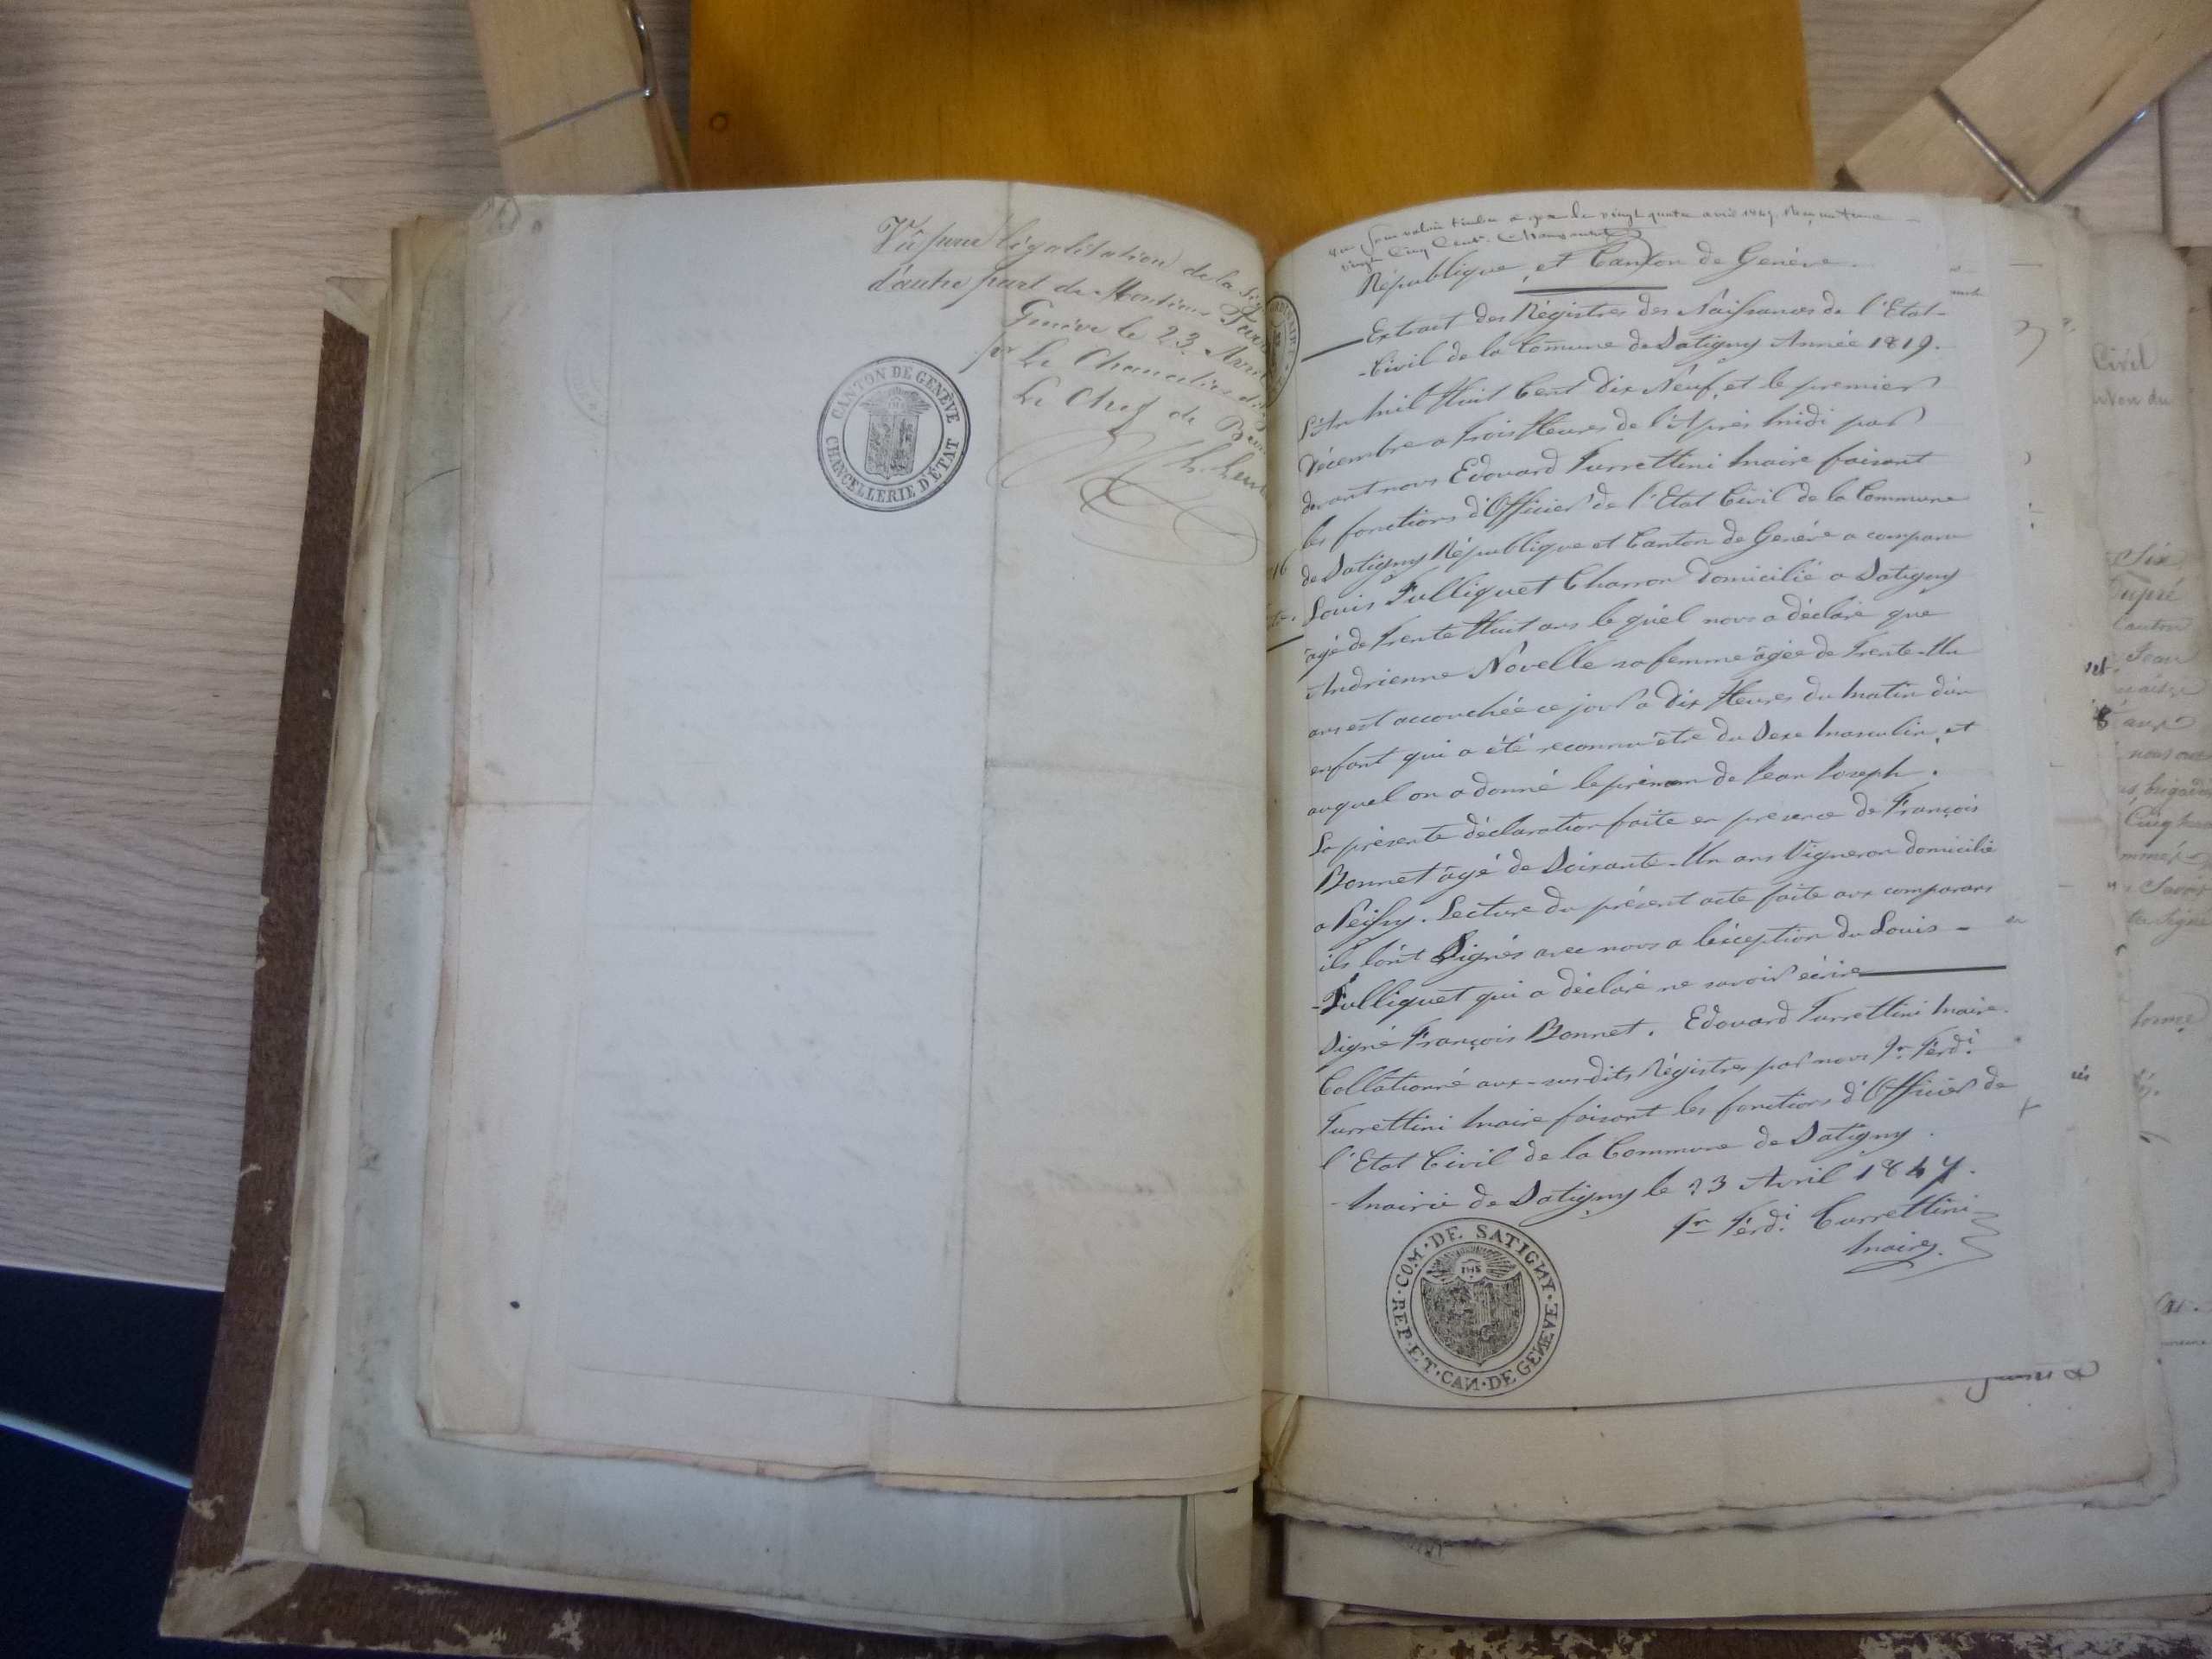 Vu pour légalisation de la
d'autre part de Monsieur
Genève le 23 Avril
pr Le Chancelier
Le Chef de
CANTON DE GENÈVE
CHANCELLERIE D'ÉTAT
vingt quatre avril
vingt Cinq Cent.
République et Canton de Genève.
Extrait des Régistres des Naissances de l'Etat-
-Civil de la Comune de Satigny Année 1819.
L'An Mil Huit Cent Dix Neuf, et le premier
Décembre a trois Heures de l'Après Midi par
devant nous Edouard Turrettini Maire faisant
les fonctions d'Officier de l'Etat Civil de la Commune
de Satigny République et Canton de Genève a comparu
Louis Fulliquet Charron domicilié a Satigny
âgé de trente Huit ans le quel nous a déclaré que
Andrienne Novelle sa femme âgée de trente-Un
ans est accouchée ce jour a Dix Heures du Matin d'un
enfant qui a été reconnu être du Sexe Masculin, et
auquel on a donné le prénom de Jean Joseph.
La présente déclaration faite en présence de François
Bonnet âgé de Soixante-Un ans Vigneron domicilié
a Peissy. Lecture du présent acte faite aux comparans
ils l'ont Signés avec nous a l'éception du Louis -
-Fulliquet qui a déclaré ne savoir écrire
Signé François Bonnet. Edouard Turrettini Maire.
Collationné aux-susdits Régistres par nous Fr Ferdi
Turrettini Maire faisant les fonctions d'Officier de
l'Etat Civil de la Commune de Satigny.
Mairie de Satigny le 23 Avril 1847.
Fr Ferdi Turrettini
Maire.
COM. DE SATIGNY. REP. ET. CAN. DE GENEVE
IHS
Civil
Six
Dupré
Canton
Jean